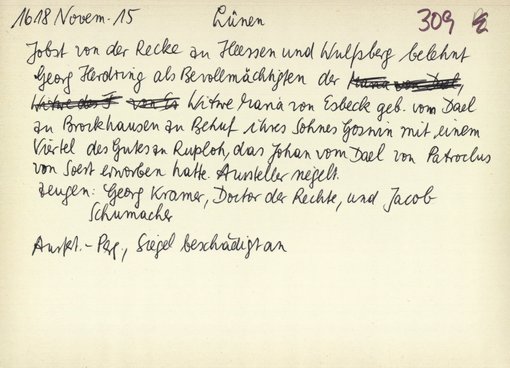 1618 Novem. 15 Lünen 309
Jobst von der Recke zu Heessen und Wulfsberg belehnt
Georg Herdring als Bevollmächtigten der Maria von Dael,
Witwe des J von Es Witwe Maria von Esbeck geb. vom Dael
zu Brockhausen zu Behuf ihres Sohnes Goswin mit einem
Viertel des Gutes zu Ruploh, das Johan vom Dael von Patroclus
von Soest erworben hatte. Aussteller siegelt.
Zeugen: Georg Kramer, Doctor der Rechte, und Jacob
Schumacher
Ausf.-Perg., Siegel beschädigt an